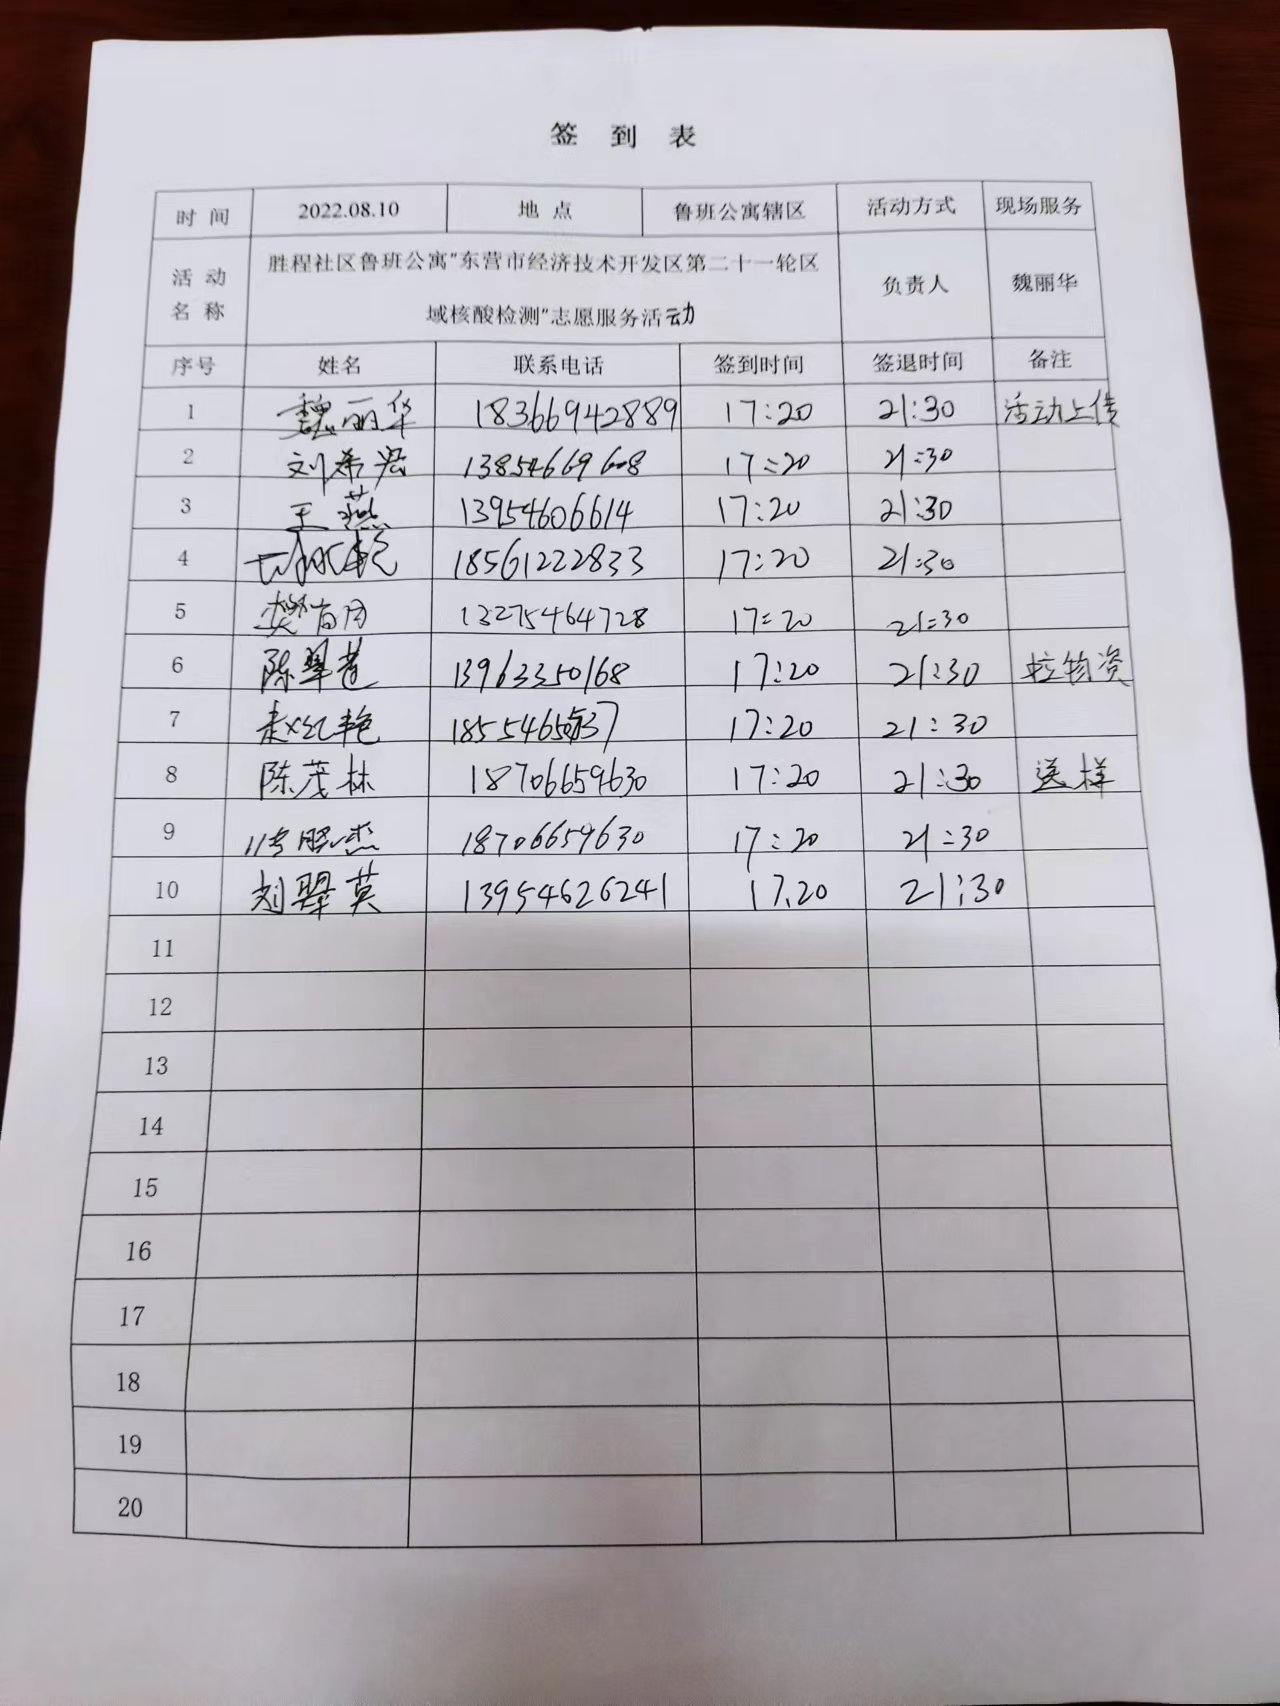 签到表
时间 2022.08.10 地点 鲁班公寓辖区 活动方式 现场服务
活动名称 胜程社区鲁班公寓"东营市经济技术开发区第二十一轮区
域核酸检测"志愿服务活动 负责人 魏丽华
序号 姓名 联系电话 签到时间 签退时间 备注
1 魏丽华 18366942889 17:20 21:30 活动上传
2 刘希宏 13854669 17:20 21:30
3 王燕 13954606614 17:20 21:30
4 18561222833 17:20 21:30
5 樊 13275464728 17:20 21:30
6 陈翠莲 13963350168 17:20 21:30 拉物资
7 赵红艳 17:20 21:30
8 陈茂林 18706659630 17:20 21:30 送样
9 18706659630 17:20 21:30
10 刘翠英 13954626241 17.20 21:30
11
12
13
14
15
16
17
18
19
20